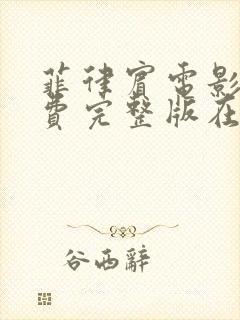 菲律宾电影
费完整版在
谷西辭